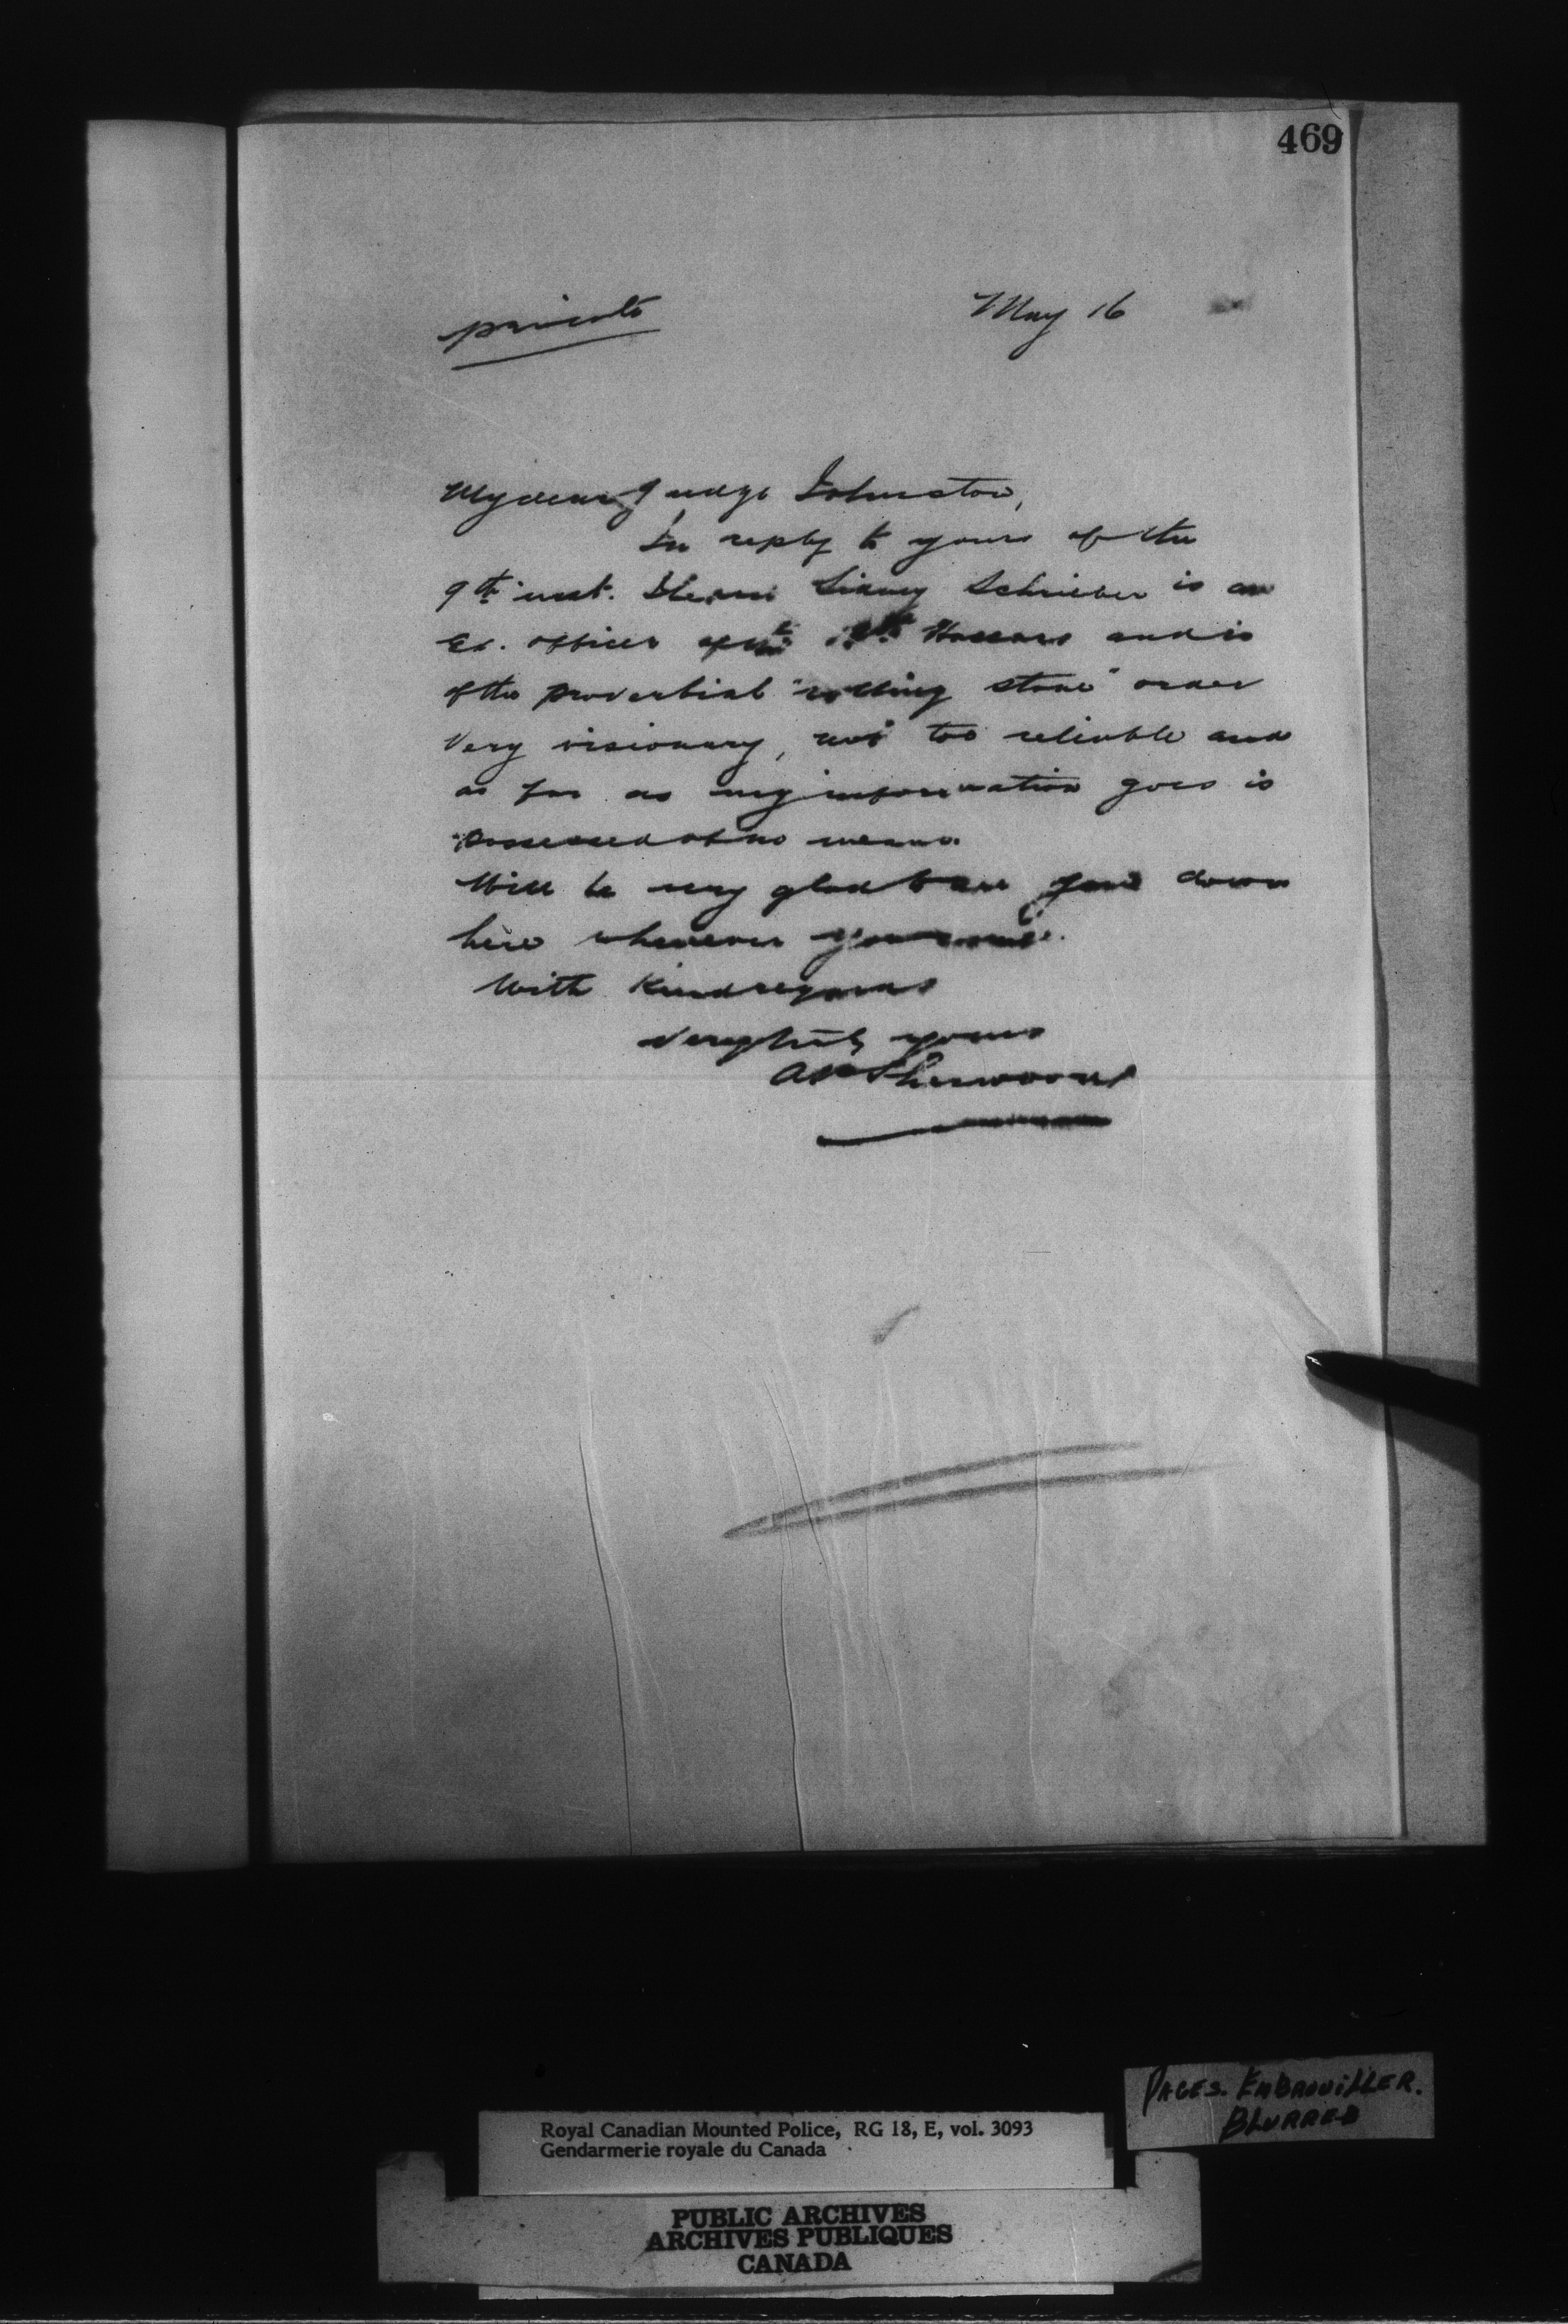 469
private
May 16
My dear Judge Johnston,
In reply to yours of the
9th inst. Sidney Schrieber is an
Ex. officer of the Hussars and is
of the proverbial "rolling stone" order
Very visionary, not too reliable and
as far as my information goes is
possessed of no means.
Will be very glad to see you down
here whenever you come.
With Kind regards
Very truly yours
AP Sherwood
PAGES. EMBROUILLER.
BLURRED
Royal Canadian Mounted Police, RG 18, E, vol. 3093
Gendarmerie royale du Canada
PUBLIC ARCHIVES
ARCHIVES PUBLIQUES
CANADA